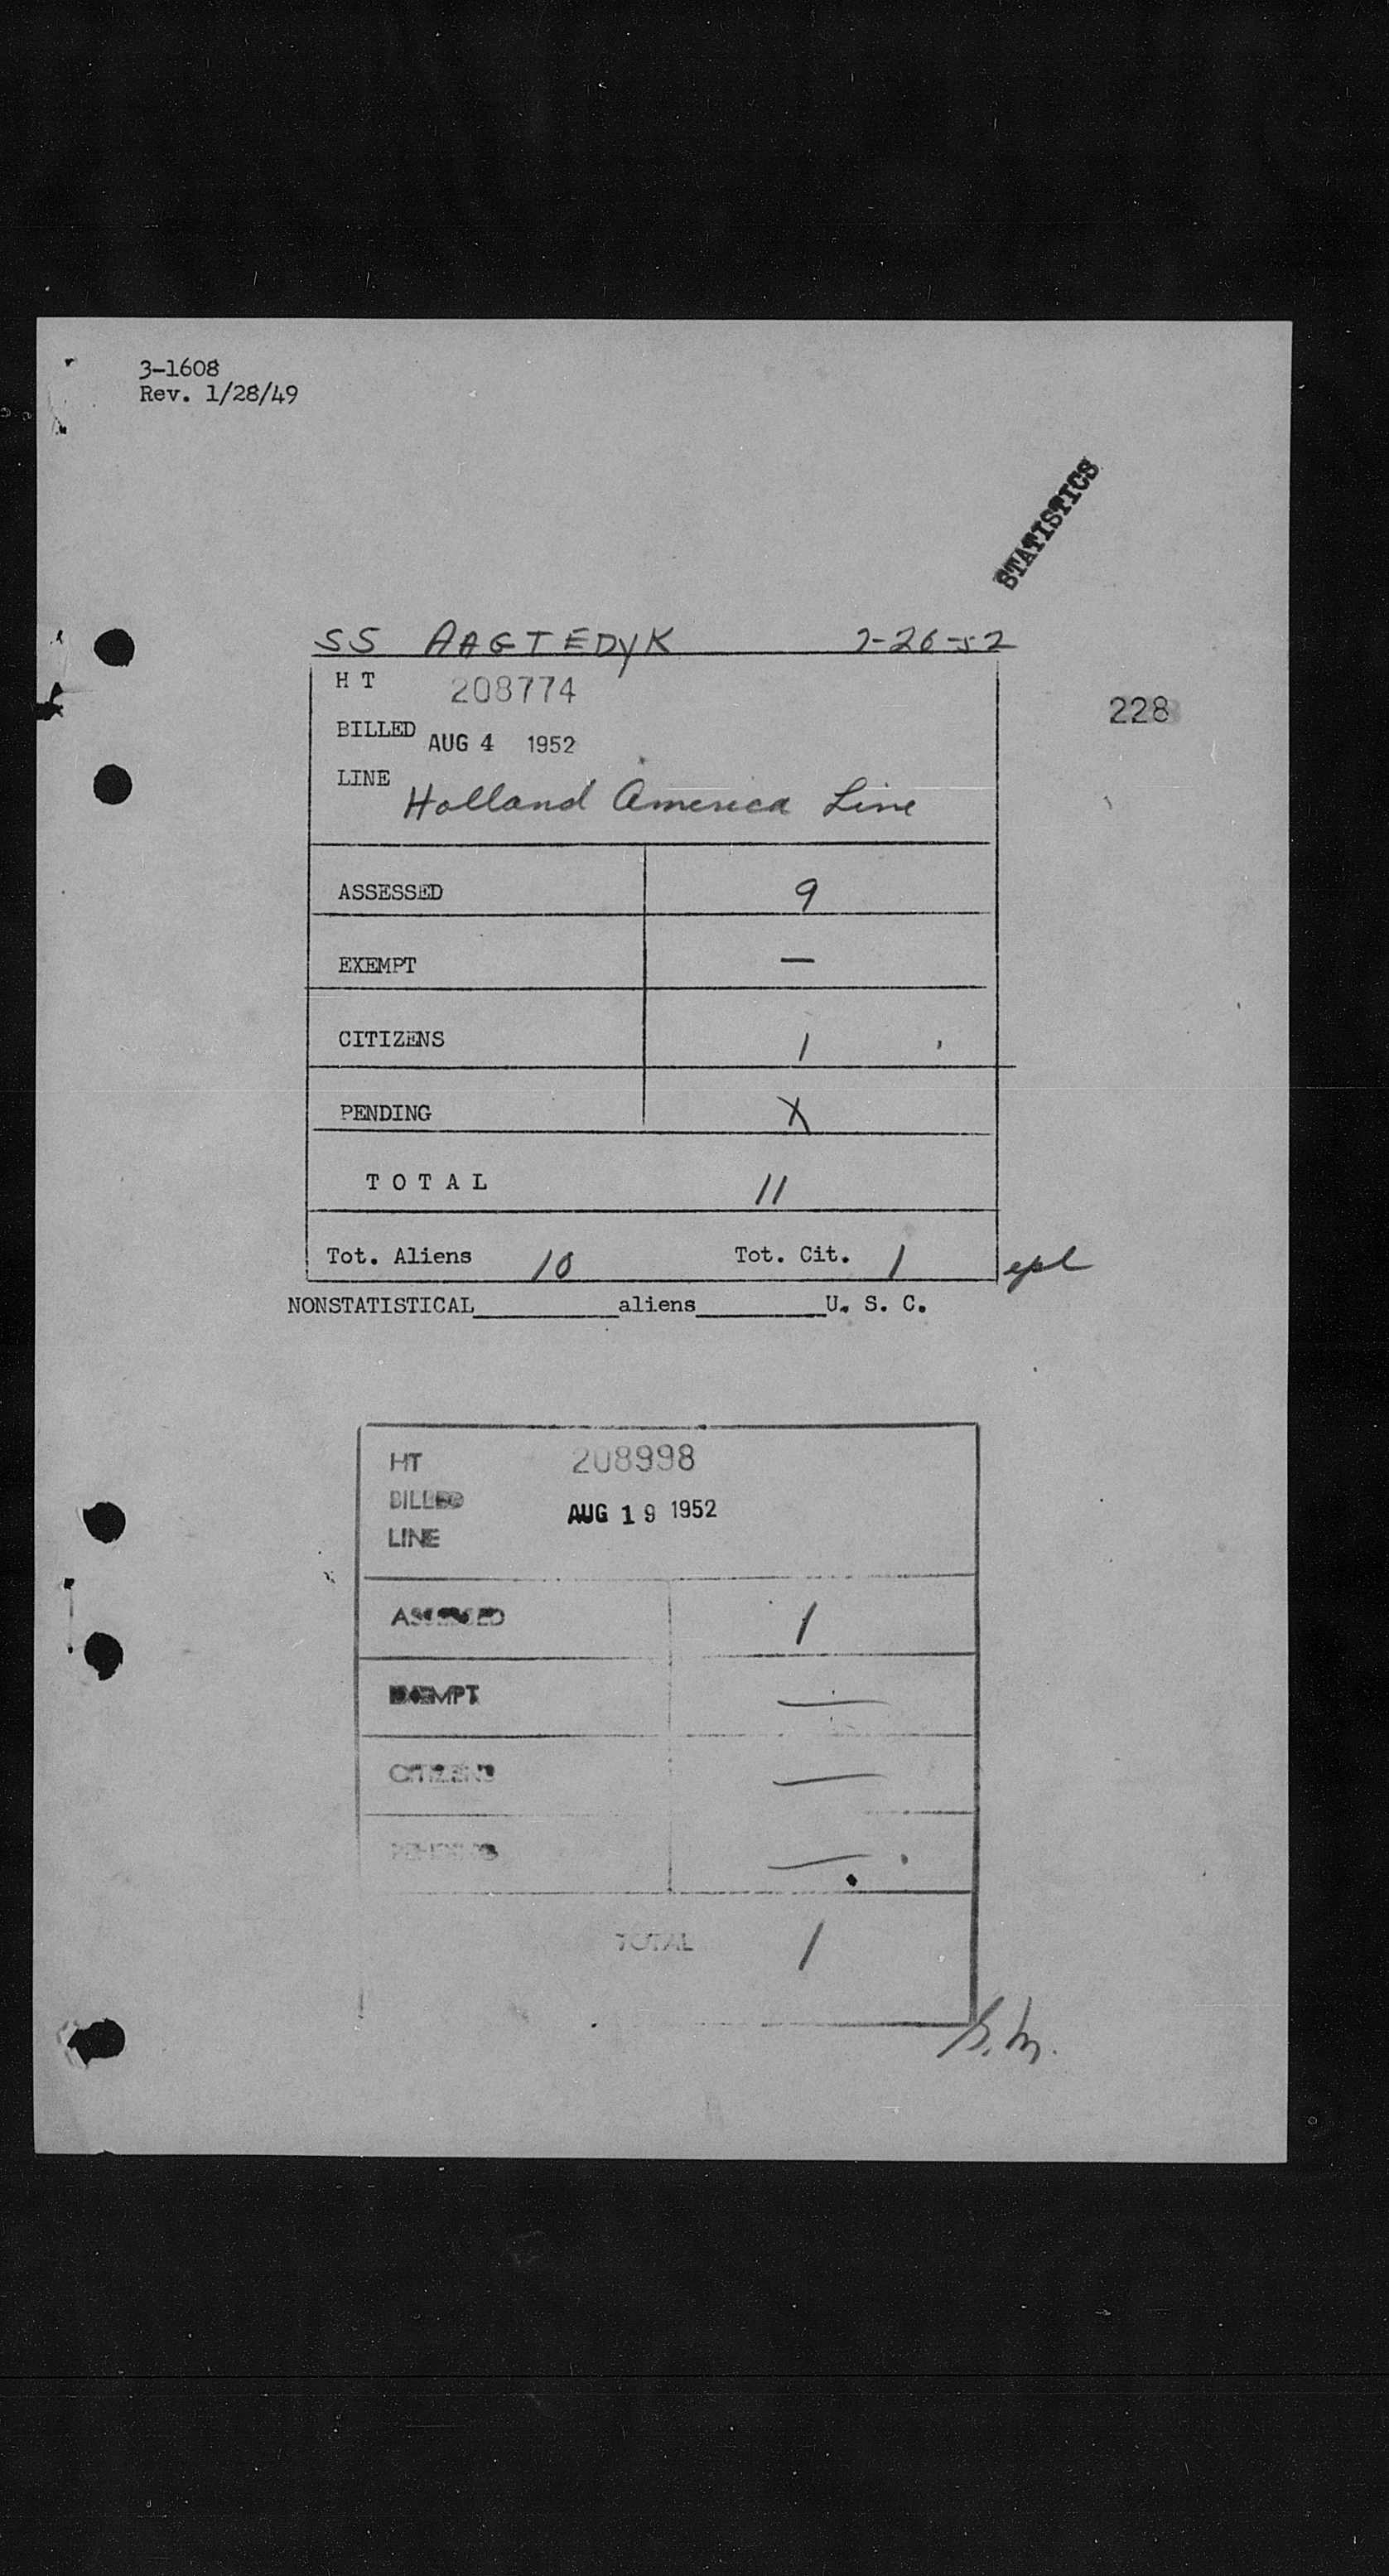 3-1608
Rev. 1/28/49
STATISTICS
SS AAGTEDYK 7-26-52
H T 208774
228
BILLED AUG 4 1952
LINE Holland America Line
ASSESSED 9
EXEMPT —
CITIZENS 1
PENDING X
T O T A L 11
Tot. Aliens 10 Tot. Cit. 1
NONSTATISTICAL________aliens________U. S. C.
HT 208998
BILLED AUG 19 1952
LINE
ASSESSED 1
EXEMPT —
CITIZENS —
PENDING —
TOTAL 1